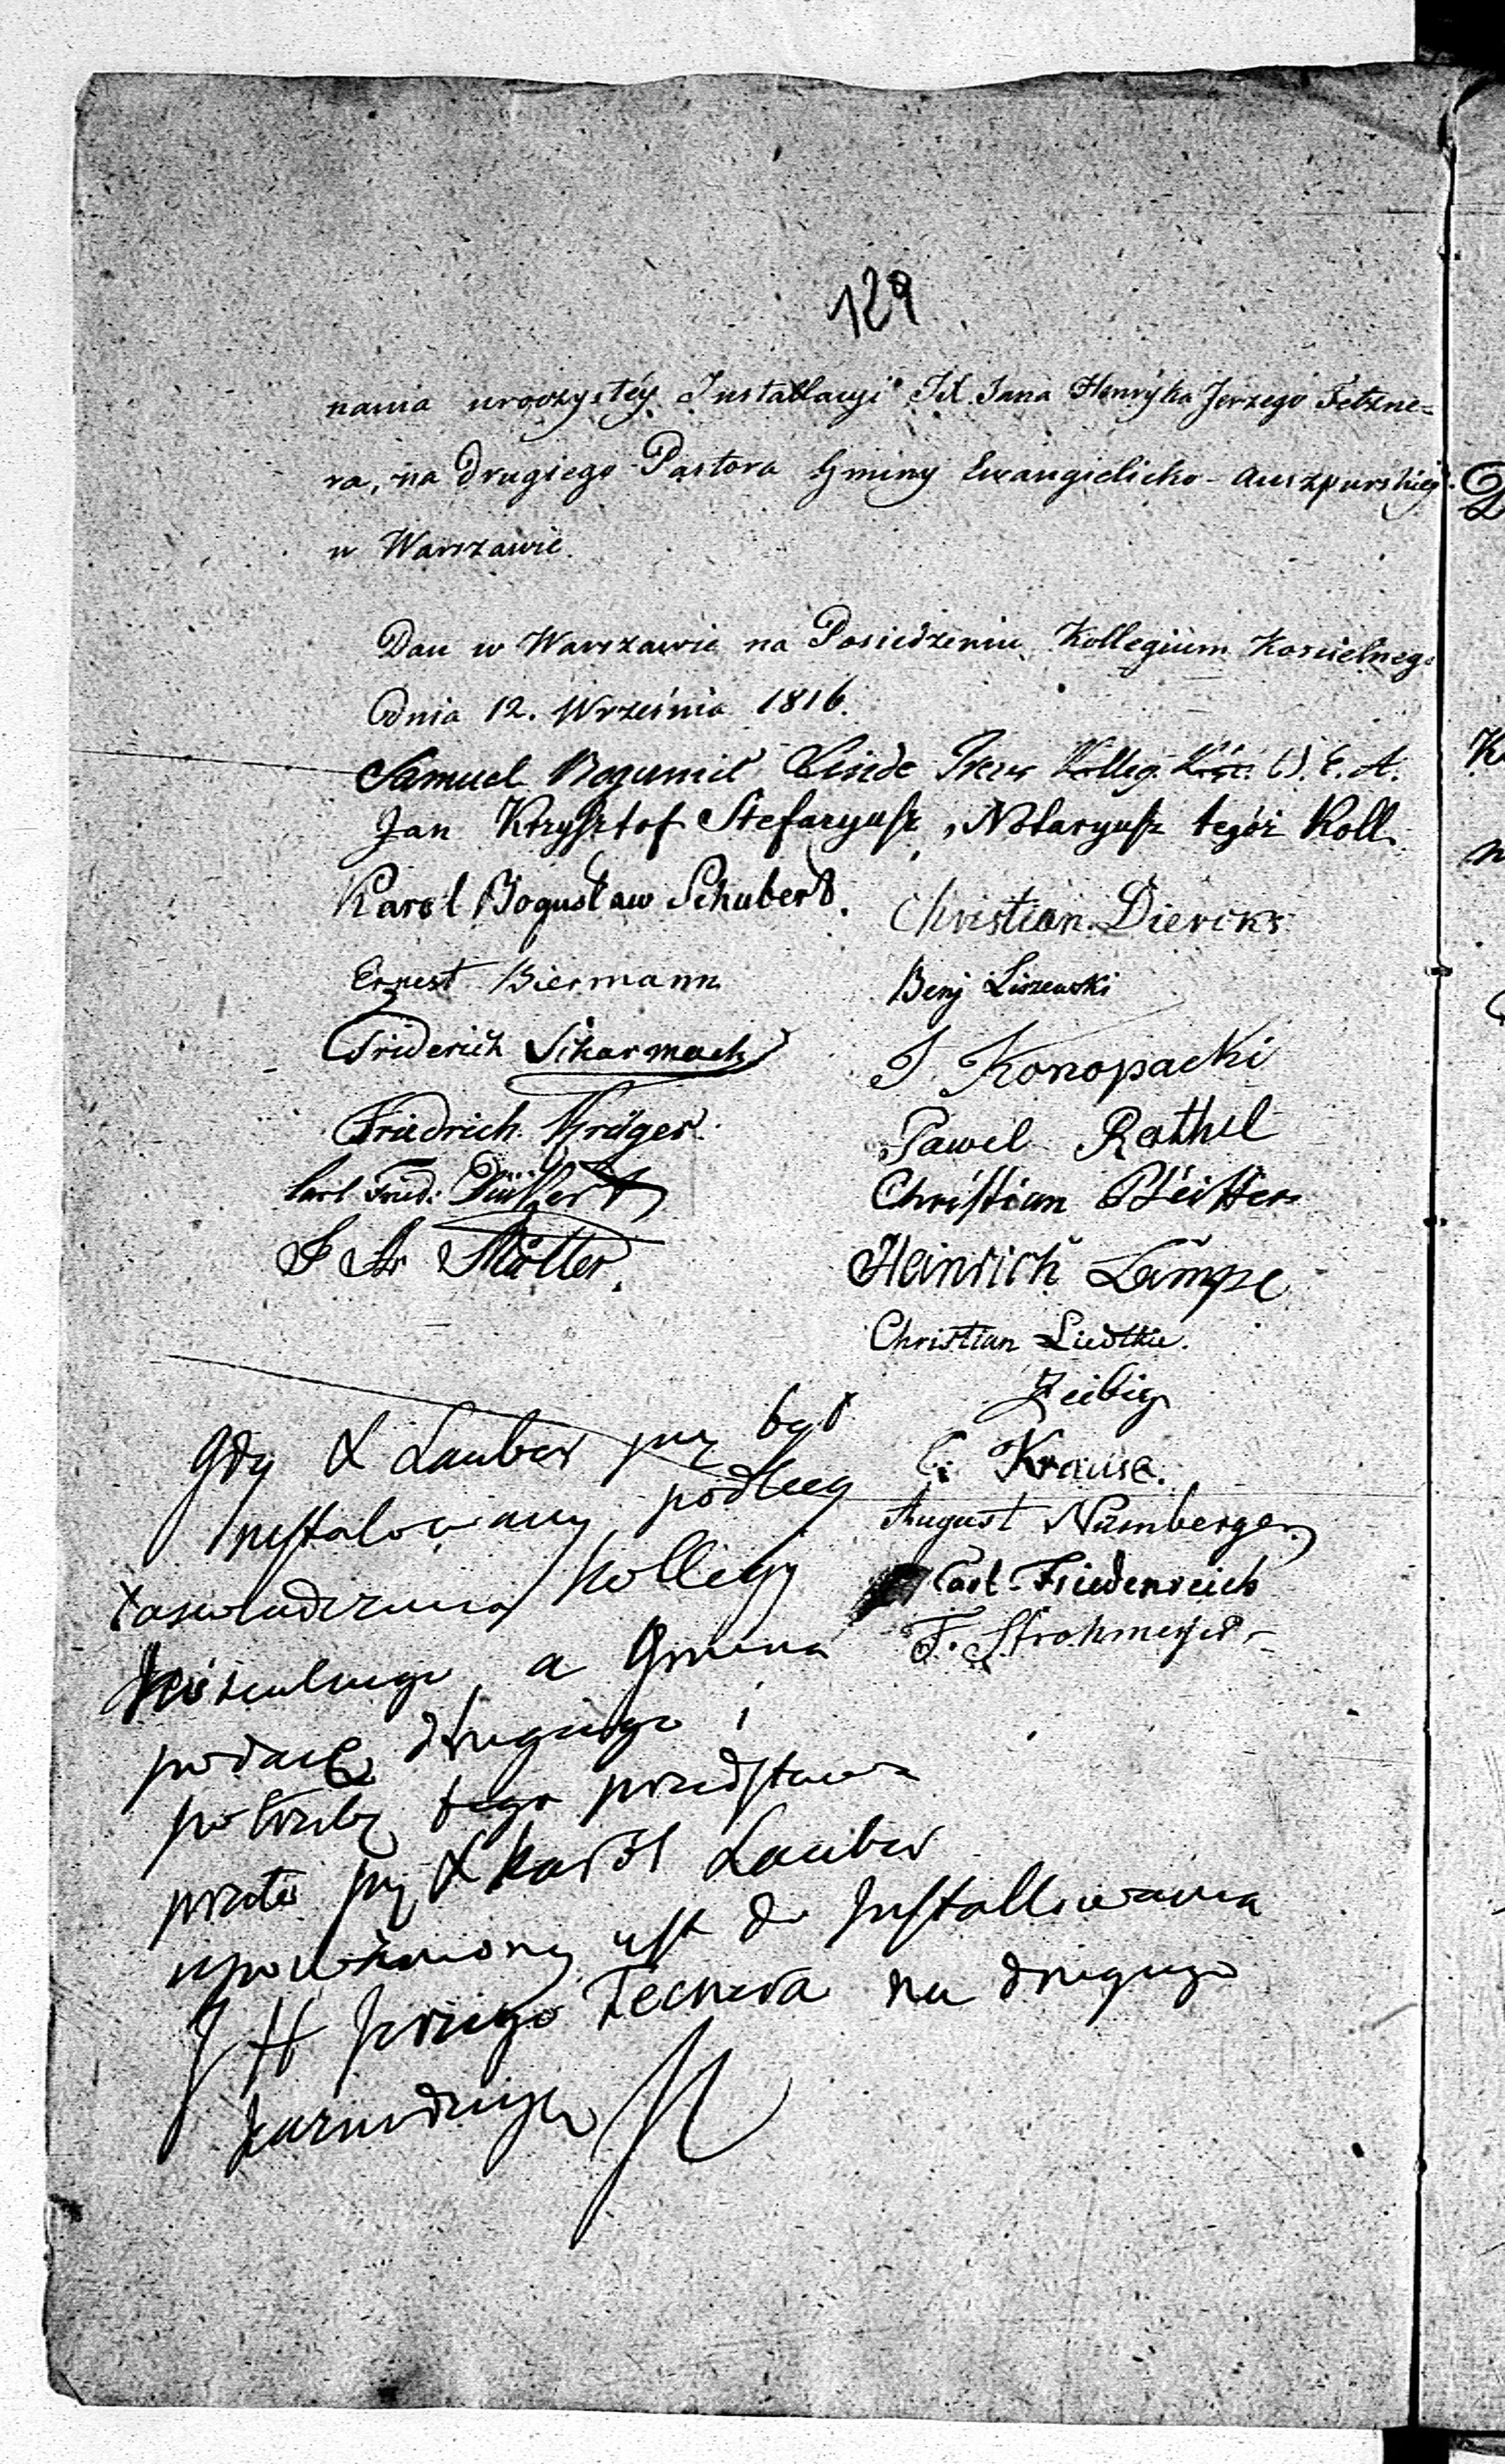 129
nania uroczystéy Installacyi JX. Jana Henryka Jerzego Tetzne=
ra, na drugiego Pastora Gminy Ewangielicko-Auszpurskiey
w Warszawie.
Dan w Warszawie na Posiedzeniu Kollegium Koscielnego
Dnia 12. Września 1816.
Samuel Bogumił Linde Prezes Kolleg. Kość. G. E. A.
Jan Krzysztof Stefazyusz, Notaryusz tegóż Koll.
Karol Bogusław Schubert.
Ernest Biermann
Friderich Sikarmack
Friedrich Kröger.
Carl Fried:
J Müller.
Christian Diercks
Benj Liszewski
J. Konopacki
Pawel Rathel
Christian Pfeiffer
Heinrich Lampe
Christian Liedtkie.
Zeibig
C. Krause.
August Nürnberger
Carl Friedenreich
F. Strohmeyer
Gdy X Lauber już był
Instalowany podług
zaswiadczenia Kollegy
Kościelnego a Gmina
podaie drugiego i
potrzebę tego przedstawa
przeto już X Karól Lauber
upoważniony iest do Installowania
J H Jerzego Tecnera na drugiego
kaznodzieję